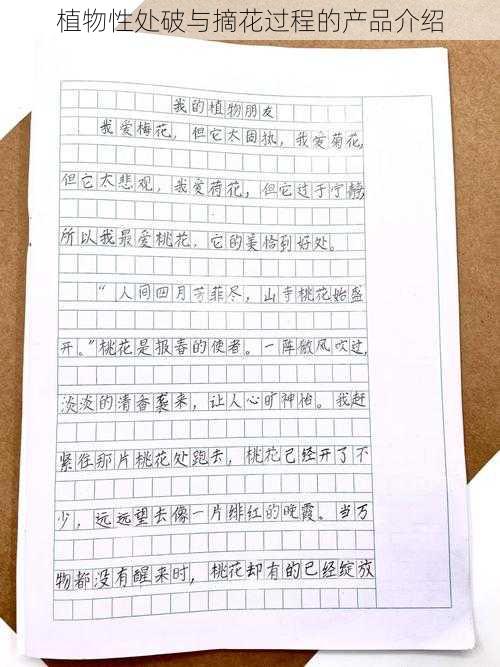 植物性处破与摘花过程的产品介绍
我的植物朋友
我爱梅花，但它太固执，我爱菊花，
但它太悲观，我爱荷花，但它过于宁静
所以我最爱桃花，它的美恰到好处。
“人间四月芳菲尽，山寺桃花始盛
开。”桃花是报春的使者。一阵微风吹过，
淡淡的清香袭来，让人心旷神怡。我赶
紧往那片桃花处跑去，桃花已经开了不
少，远远望去像一片绯红的晚霞。当万
物都没有醒来时，桃花却有的已经绽放